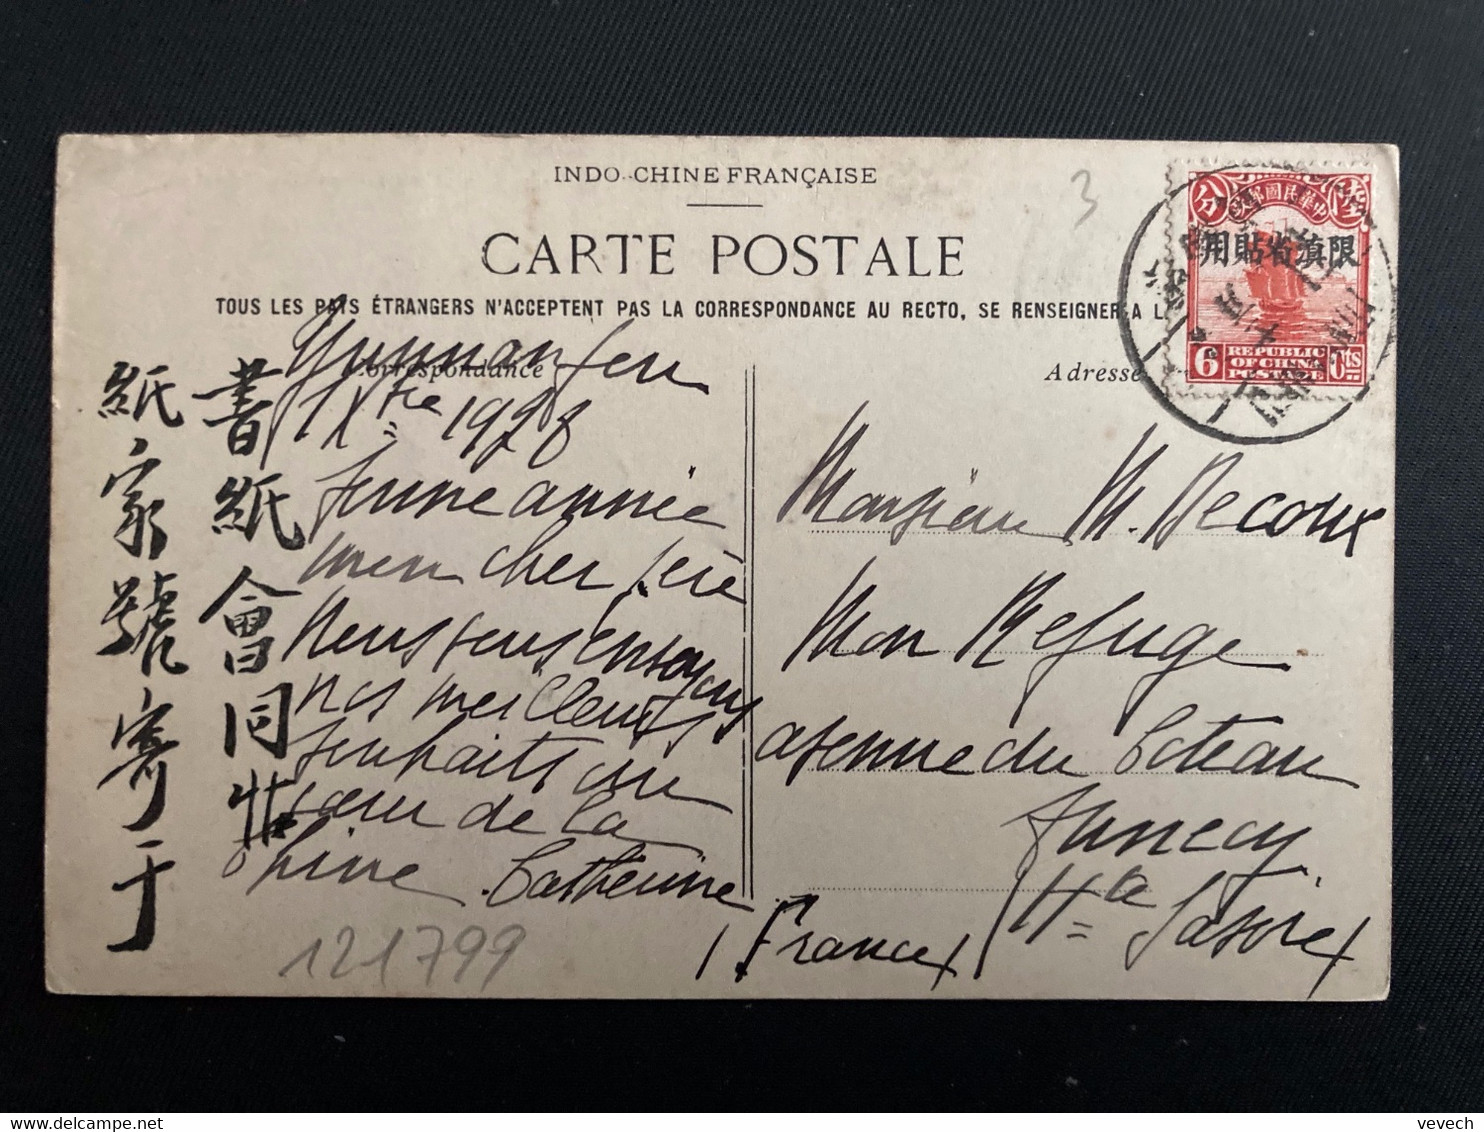 INDO-CHINE FRANÇAISE
CARTE POSTALE
TOUS LES PAYS ÉTRANGERS N'ACCEPTENT PAS LA CORRESPONDANCE AU RECTO, SE RENSEIGNER A L
Correspondance
Adresse
3
中華民國郵
分
限滇省貼用
6
REPUBLIC
OF CHINA
POSTAGE
6 cts
Yunnanfou
1 Xbre 1928
bonne année
mon cher
Nous vous envoyons
nos meilleurs
souhaits du
cœur de la
Chine Catherine
Monsieur M. Decoux
Mon Refuge
avenue du Coteau
Annecy
Hte Savoie
(France)
書紙會同
紙家號寄于
121799
vevech